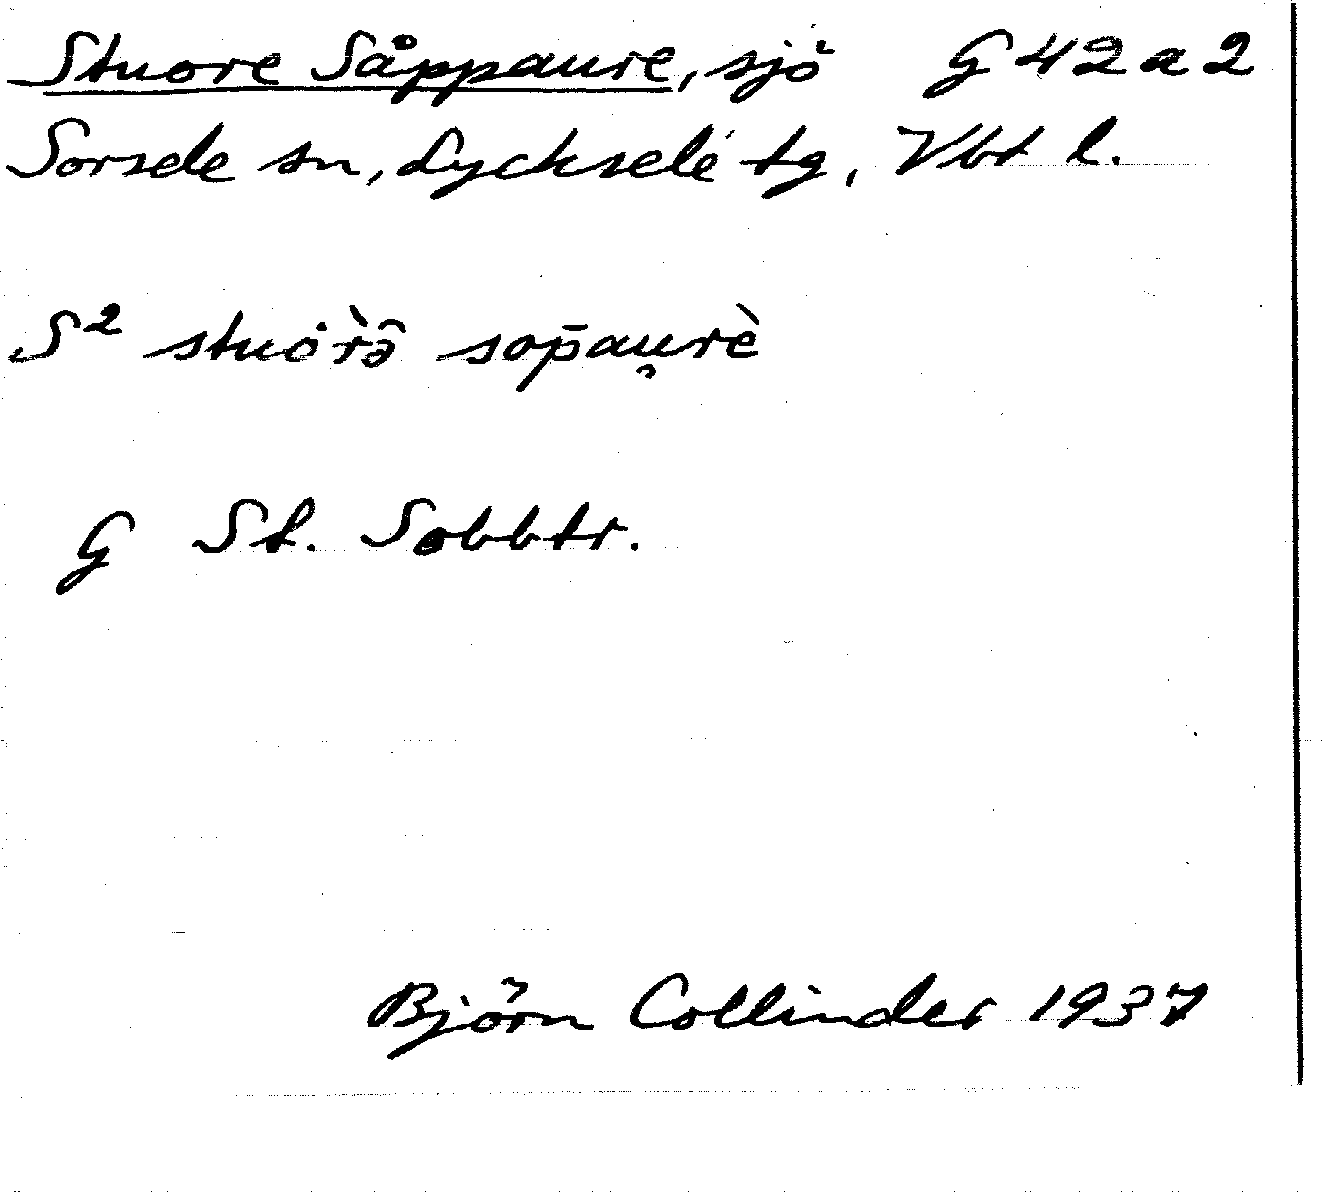 Stuore Såppaure, sjö G 42 a 2
Sorsele sn, Lycksele tg, Vbt l.
S² stuȯr̀ə̂ sop̄au̯rè
G St. Sobbtr.
Björn Collinder 1937